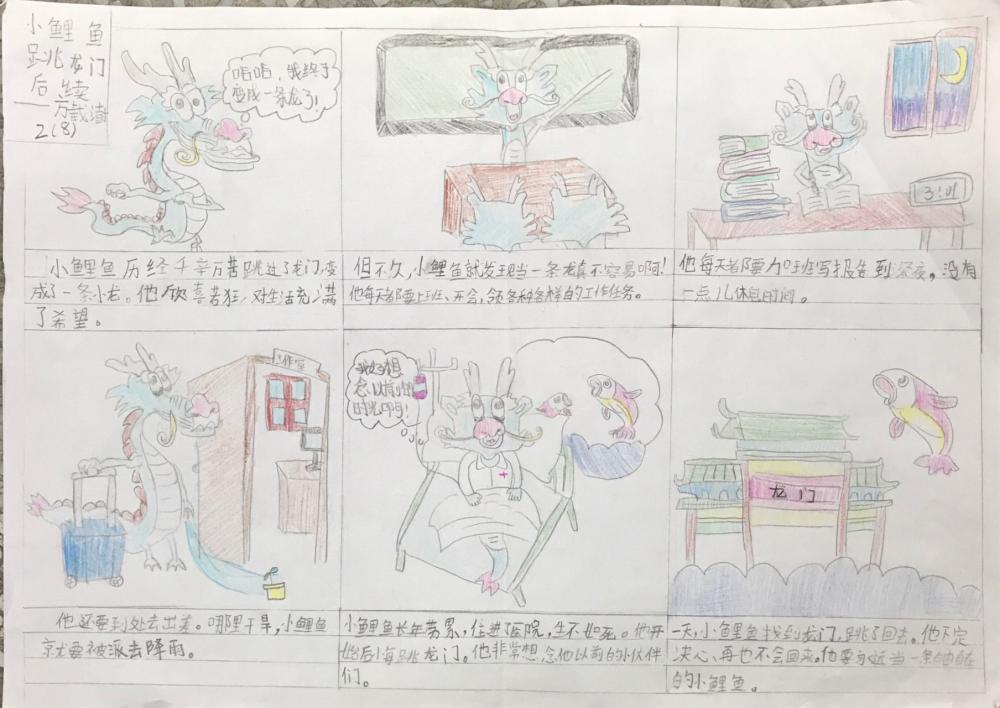 小鲤鱼
跳龙门
后续
2(8)
哈哈，我终于
变成一条龙了！
小鲤鱼历经千辛万苦跳过了龙门，变
成了一条小龙。他欣喜若狂，对生活充满
了希望。
但不久，小鲤鱼就发现当一条龙真不容易啊！
他每天都要上班、开会，领各种各样的工作任务。
3:01
他每天都要加班写报告到深夜，没有
一点儿休息时间。
工作室
他还要到处去出差。哪里干旱，小鲤鱼
就要被派去降雨。
我好想
念以前的
时光啊！
小鲤鱼长年劳累，住进了医院，生不如死。他开
始后悔跳龙门。他非常想念他以前的小伙伴
们。
龙门
一天，小鱼里鱼找到龙门，跳了回去。他下定
决心，再也不会回来。他要永远当一条自由自在
的小鲤鱼。